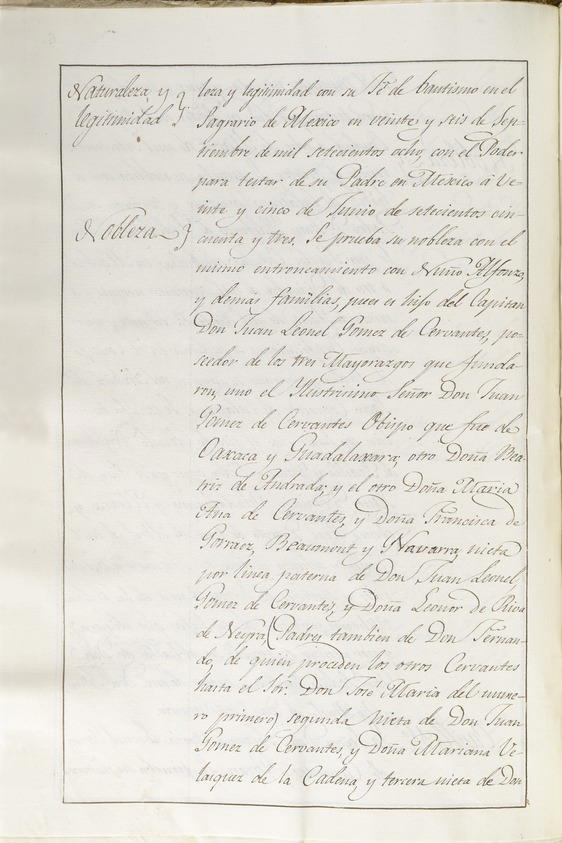 Naturaleza y
legitimidad
leza y legitimidad con su Fe de bautismo en el
Sagrario de Mexico en veinte y seis de Sep-
tiembre de mil setecientos ocho, con el Poder
para testar de su Padre en Mexico à Ve-
inte y cinco de Junio de setecientos cin-
Nobleza
cuenta y tres. Se prueba su nobleza con el
mismo entroncamiento con Nuño Alfonzo,
y demas familias, pues es hijo del Capitan
Don Juan Leonel Gomez de Cervantes, po-
seedor de los tres Mayorazgos que funda-
ron, uno el Ilustrisimo Señor Don Juan
Gomez de Cervantes Obispo que fue de
Oaxaca y Guadalaxara; otro Doña Bea-
tris de Andrada; y el otro Doña Maria
Ana de Cervantes, y Doña Francisca de
Gorraez, Beaumont y Navarra, nieta
por linea paterna de Don Juan Leonel
Gomez de Cervantes, y Doña Leonor de Riva
de Neyra, (Padres tambien de Don Fernan-
do, de quien proceden los otros Cervantes
hasta el Sor. Don José Maria del nume-
ro primero) segunda Nieta de Don Juan
Gomez de Cervantes, y Doña Mariana Ve-
lasquez de la Cadena, y tercera nieta de Don